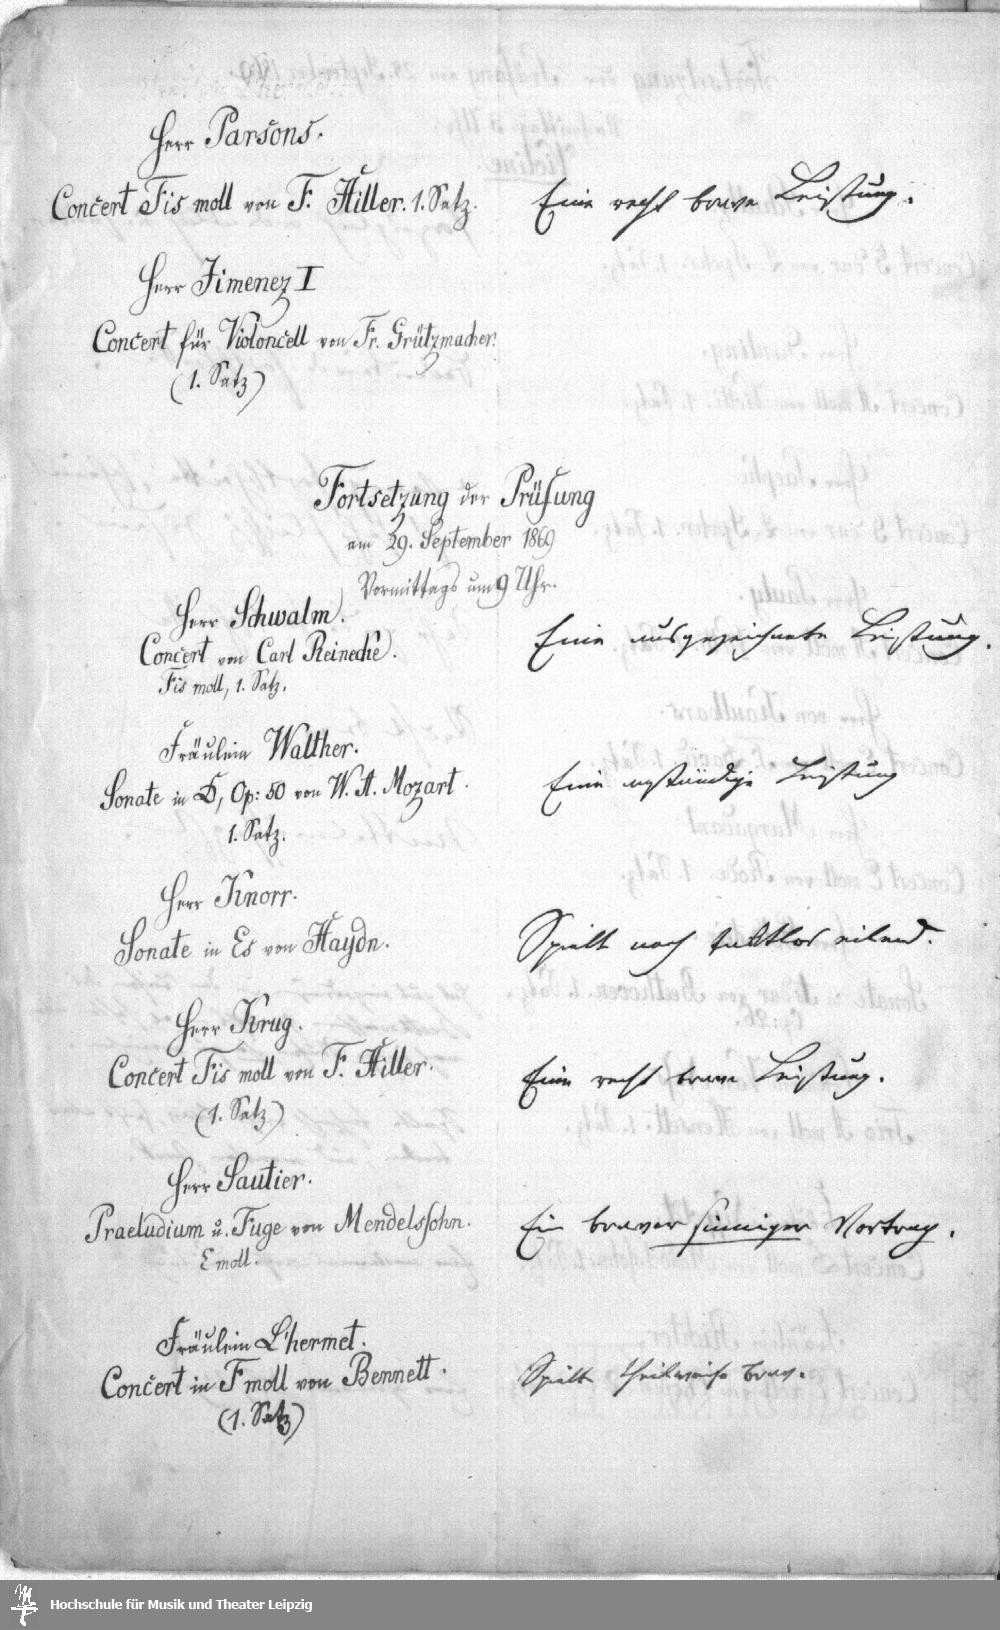 Herr Parsons.
Concert Fis moll von F. Hiller. 1. Satz. Eine recht brave Leistung.
Herr Jimenez I
Concert für Violoncell von Fr. Grützmacher.
(1. Satz)
Fortsetzung der Prüfung
am 29. September 1869
Vormittags um 9 Uhr.
Herr Schwalm.
Concert von Carl Reinecke. Eine ausgezeichnete Leistung.
Fis moll, 1. Satz.
Fräulein Walther.
Sonate in D, Op: 50 von W. A. Mozart. Eine anständige Leistung
1. Satz.
Herr Knorr.
Sonate in Es von Haydn. Spielt noch taktlos eilend.
Herr Krug.
Concert Fis moll von F. Hiller. Eine recht brave Leistung.
(1. Satz)
Herr Sautier.
Praeludium u. Fuge von Mendelssohn. Ein braver sinniger Vortrag.
E moll.
Fräulein L'hermet.
Concert in F moll von Bennett. Spielt theilweise brav.
(1. Satz)
Hochschule für Musik und Theater Leipzig